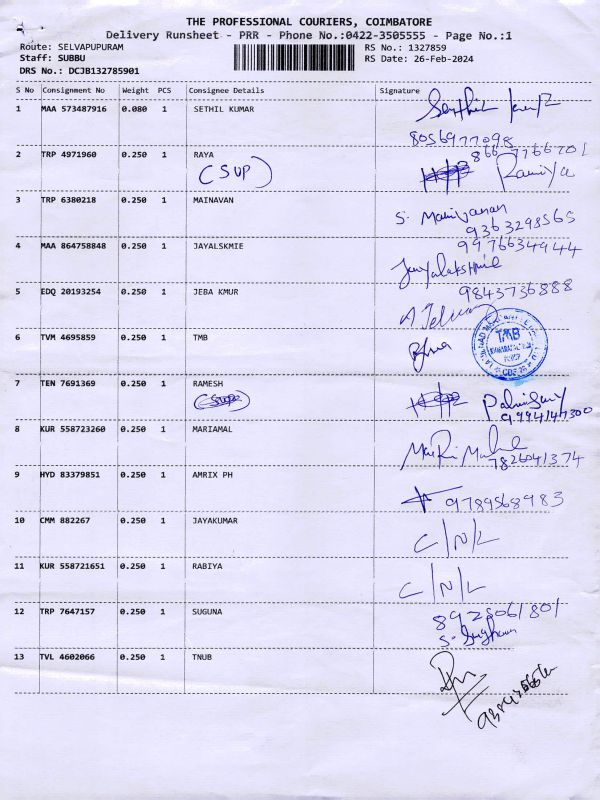 THE PROFESSIONAL COURIERS, COIMBATORE
Delivery Runsheet - PRR - Phone No.:0422-3505555 - Page No.:1
Route: SELVAPUPURAM RS No.: 1327859
Staff: SUBBU RS Date: 26-Feb-2024
DRS No.: DCJB132785901
S No Consignment No Weight PCS Consignee Details Signature
1 MAA 573487916 0.080 1 SETHIL KUMAR
8056977098
2 TRP 4971960 0.250 1 RAYA 8667766701
(SUP) Ramiya
3 TRP 6380218 0.250 1 MAINAVAN S. Manivanan
9363298565
4 MAA 864758848 0.250 1 JAYALSKMIE 9976634944
5 EDQ 20193254 0.250 1 JEBA KMUR 9843736888
6 TVM 4695859 0.250 1 TMB TMB
7 TEN 7691369 0.250 1 RAMESH
9994147300
8 KUR 558723260 0.250 1 MARIAMAL
7826041374
9 HYD 83379851 0.250 1 AMRIX PH 9789568983
10 CMM 882267 0.250 1 JAYAKUMAR C/N/L
11 KUR 558721651 0.250 1 RABIYA C/N/L
12 TRP 7647157 0.250 1 SUGUNA
13 TVL 4602066 0.250 1 TNUB